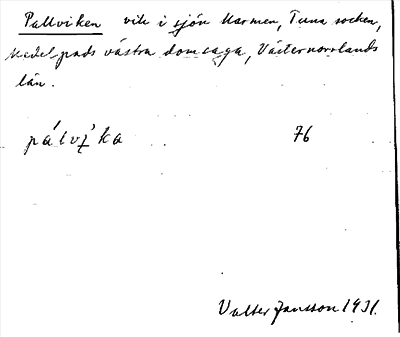 Pallviken vik i sjön Marmen, Tuna socken,
Medelpads västra domsaga, Västernorrlands
län.
pálvì̢ka 76
Valter Jansson 1931.